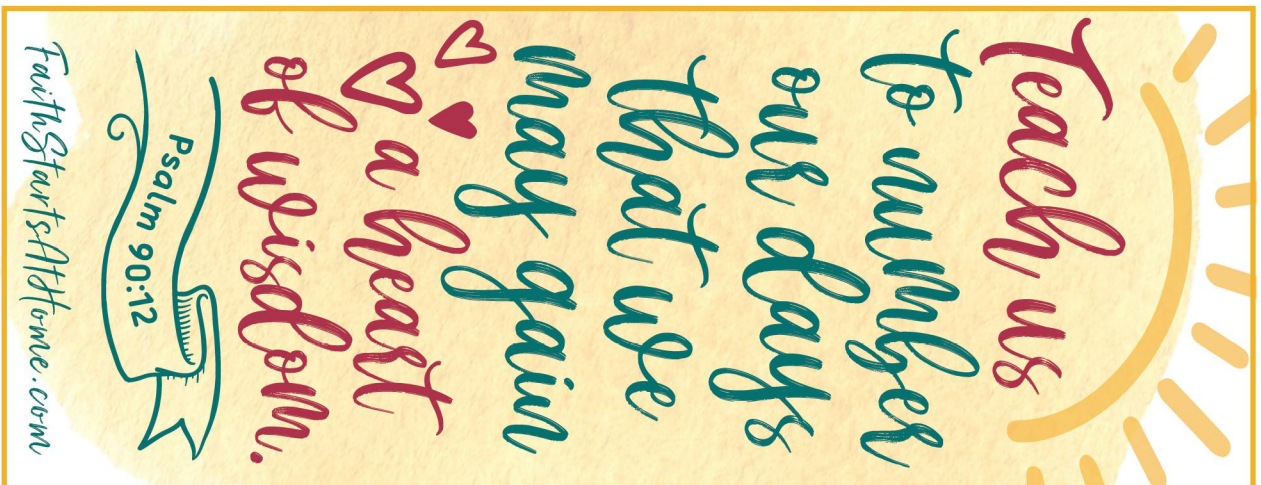 Teach us
to number
our days
that we
may gain
a heart
of wisdom.
Psalm 90:12
FaithStartsAtHome.com